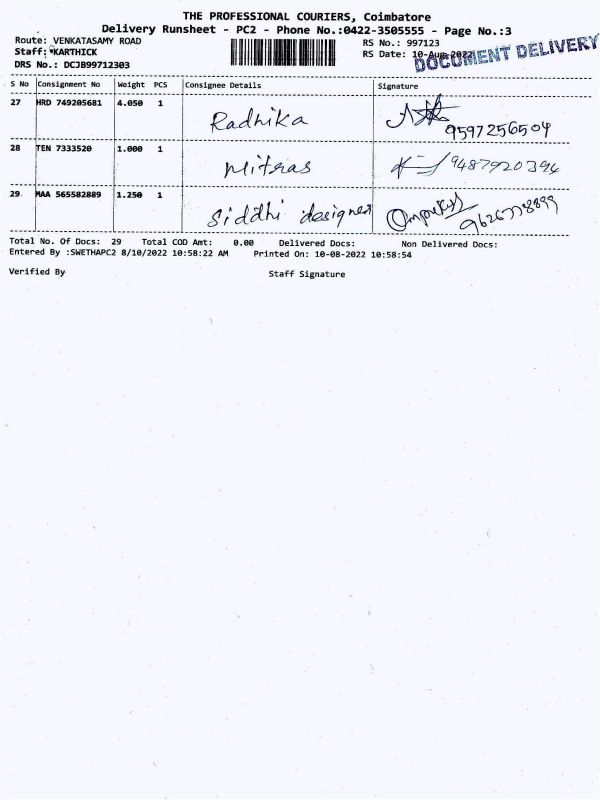 THE PROFESSIONAL COURIERS, Coimbatore
Delivery Runsheet - PC2 - Phone No.:0422-3505555 - Page No.:3
Route: VENKATASAMY ROAD
RS No.: 997123
Staff: KARTHICK
RS Date: 10-Aug-2022
DOCUMENT DELIVERY
DRS No.: DCJB99712303
S No Consignment No Weight PCS Consignee Details Signature
27 HRD 749205681 4.050 1 Radhika 9597256504
28 TEN 7333520 1.000 1 Mitras 9487920394
29 MAA 565582889 1.250 1 Siddhi designer 9626778899
Total No. Of Docs: 29 Total COD Amt: 0.00 Delivered Docs: Non Delivered Docs:
Entered By :SWETHAPC2 8/10/2022 10:58:22 AM Printed On: 10-08-2022 10:58:54
Verified By Staff Signature